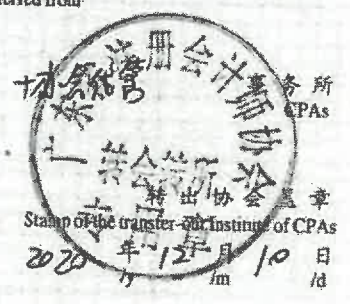 事务所
CPAs
广东注册会计师协会
转会转所
转出协会盖章
Stamp of the transfer-out Institute of CPAs
2020 年 12 月 10 日
/y /m /d